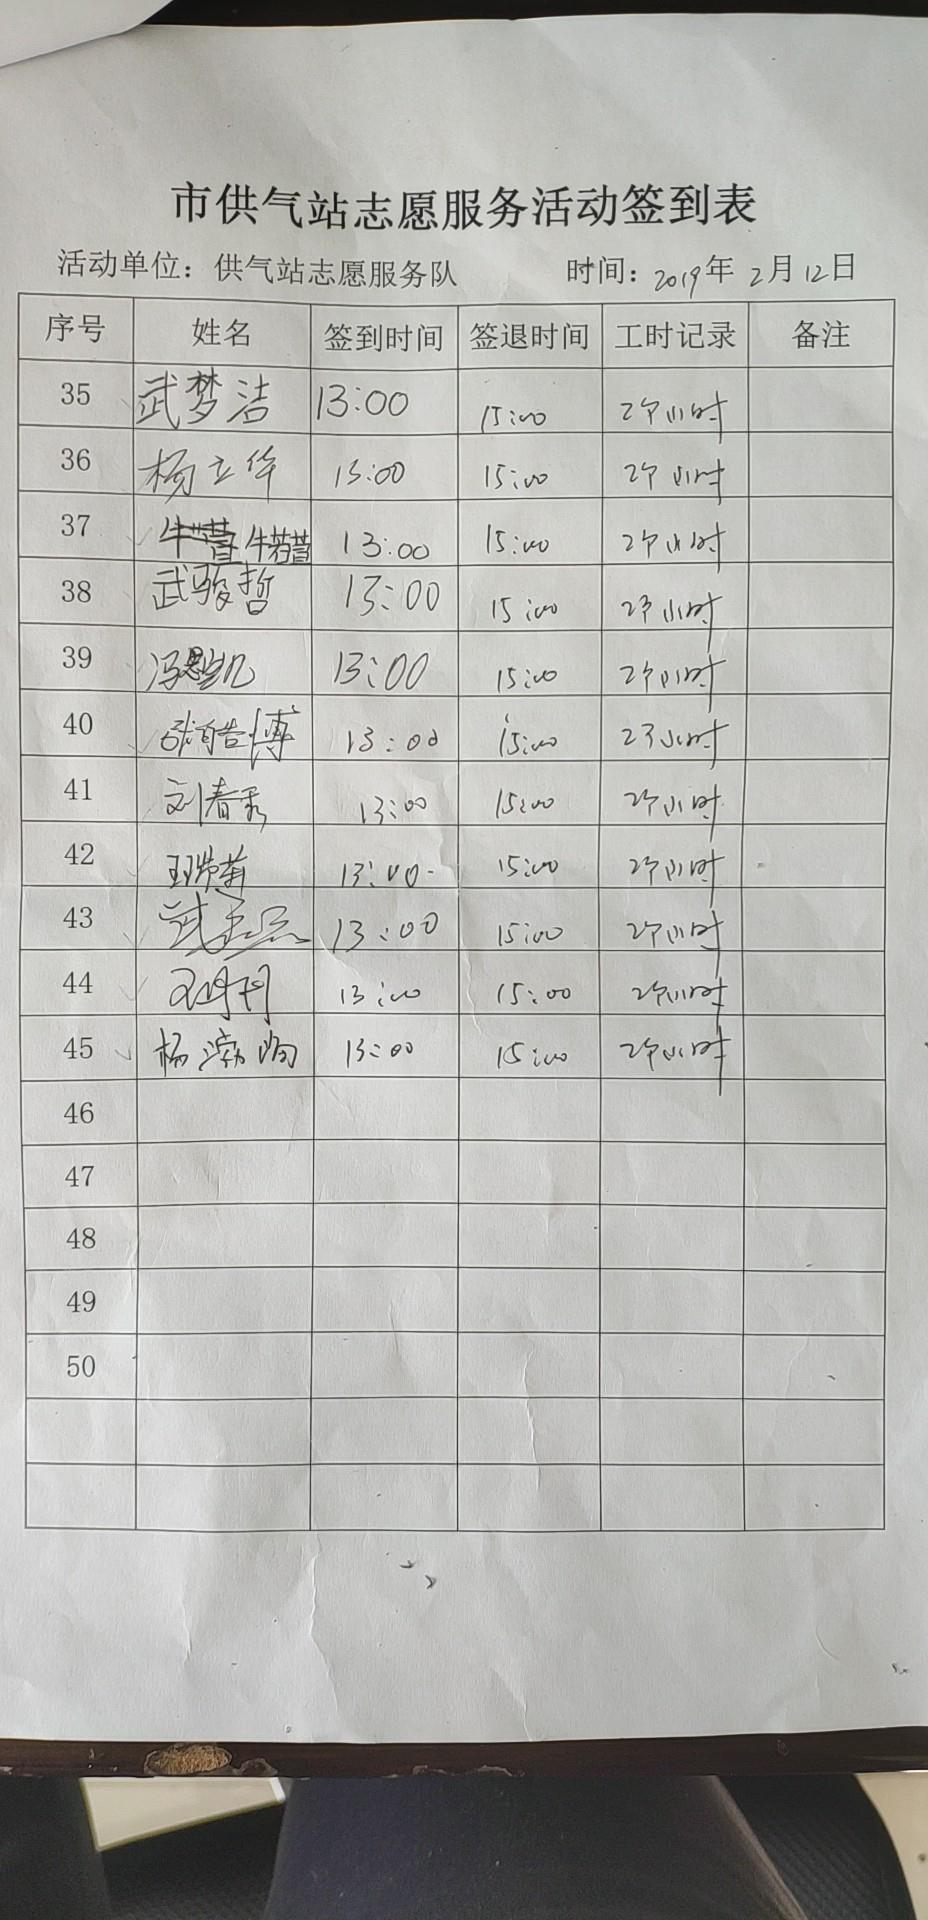 市供气站志愿服务活动签到表
活动单位：供气站志愿服务队 时间：2019年 2月 12日
序号 姓名 签到时间 签退时间 工时记录 备注
35 武梦洁 13:00 15:00 2个小时
36 杨立华 13:00 15:00 2个小时
37 牛若昔 13:00 15:00 2个小时
38 武骏哲 13:00 15:00 2个小时
39 冯思凯 13:00 15:00 2个小时
40 张皓博 13:00 15:00 2个小时
41 刘春秀 13:00 15:00 2个小时
42 13:00 15:00 2个小时
43 13:00 15:00 2个小时
44 13:00 15:00 2个小时
45 杨渤 13:00 15:00 2个小时
46
47
48
49
50